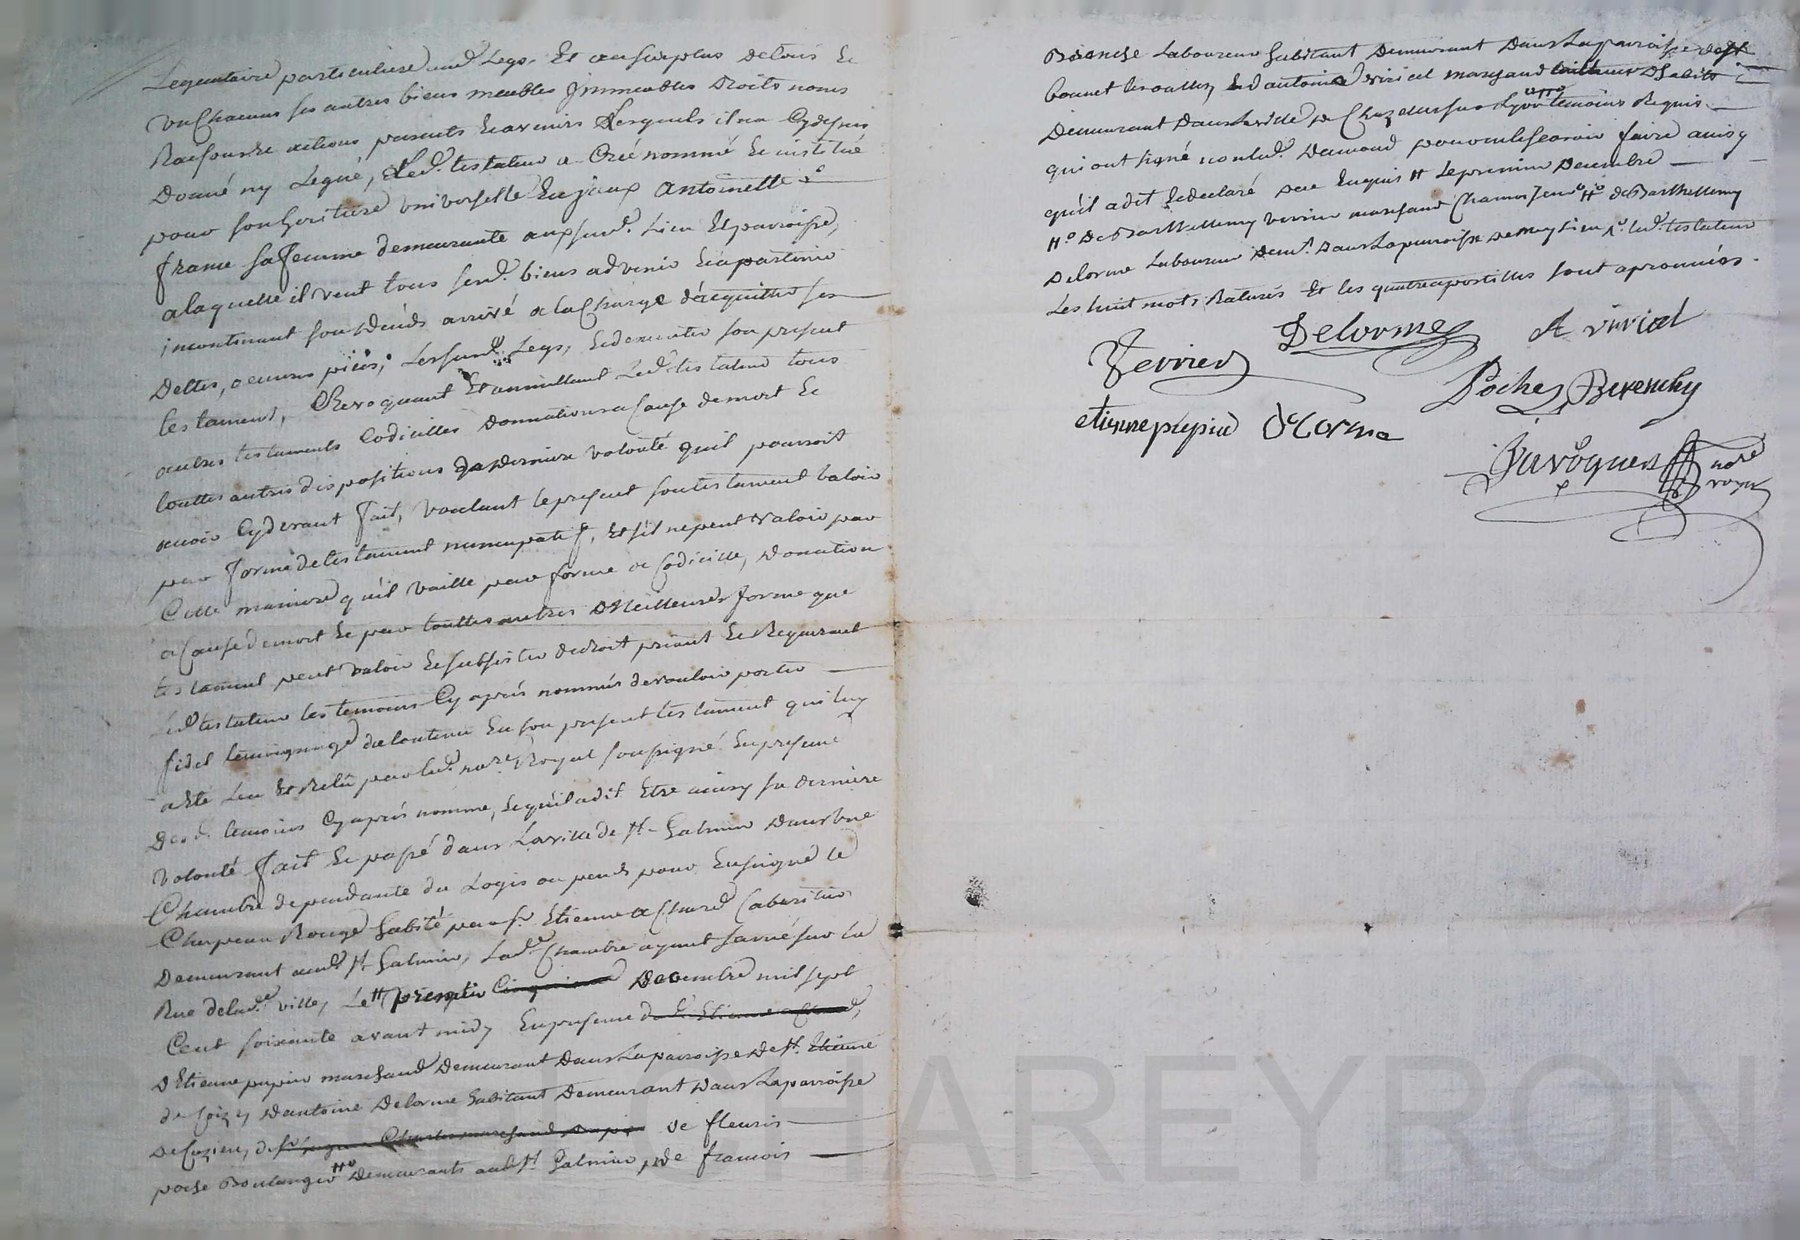 Legataire particuliere aud. Legs. Et au surplus de tous Et
un Chacuns ses autres biens meubles Immeubles Droits noms
Raisons Et actions presents Et avenirs Desquels il n'a Cy dessus
Donné ny Legué, Led. testateur a Créé nommé Et institué
pour son heritiere universelle Antoinette
frame sa femme demeurante aux sus d. Lieu Et parroisse,
a laquelle il veut tous sesd. biens advenir Et apartenir
incontinant son deceds arrivé a la Charge d'acquitter ses
Dettes, oeuvres pies, Les sus d. Legs, Et d'executer son present
testament, Revoquant Et annullant Led. testateur tous
autres testaments Codicilles Donnations a Cause de mort Et
touttes autres dispositions de derniere volonté qu'il pourroit
avoir Cy devant fait, voulant le present son testament valoir
par forme de testament nuncupatif, Et s'il ne peut valoir par
Cette maniere qu'il vaille par forme de Codicille, Donation
a Cause de mort Et par touttes autres Meilleures forme que
testament peut valoir Et subsister de droit priant Et Requerant
Led. testateur les temoins Cy apres nommés de vouloir porter
fidel temoignage du Contenu En son present testament qui luy
a Eté Leu Et Relu par led. no.re Royal soussigné En presence
Desd. temoins Cy aprés nommé, Et qu'il a dit Etre ainsy sa derniere
volonté fait Et passé dans La ville de St. Galmier Dans une
Chambre dependante du Logis ou pend pour Enseigne le
Chapeau Rouge habité par Sr. Etienne aChard Cabaretier
Demeurant aud. St. Galmier, Lad.e Chambre ayant Jour sur La
Rue de lad.e ville, Le premier Decembre mil sept
Cent soixante avant midy En presence de
D'Etienne pupier marchand Demeurant Dans La parroisse de St.
D'antoine Delorme habitant Demeurant Dans La parroisse
De Cuzieu, de fleuris
poche Boulanger Demeurants aud. St. Galmier, de francois
Laboureur habitant Demeurant Dans La parroisse de St.
bonnet les oulles, Et d'antoine viricel marchand
Demeurant Dans La ville de Chazelles sur Lyon temoins Requis
qui ont signé non led. pour ne le scavoir faire ainsy
qu'il a dit Et declaré de ce Enquis Le premier Decembre
De Barthelemy verrier marchand de Barthelemy
Delorme Laboureur Dem.t Dans La parroisse led. testateur
Les huit mots Raturés Et les quatre apostilles sont aprouvées.
Delorme A viricel
Verrier
Poche Berenchy
etienne pupier DeLorme
Javogues no.re
royal
CHAREYRON